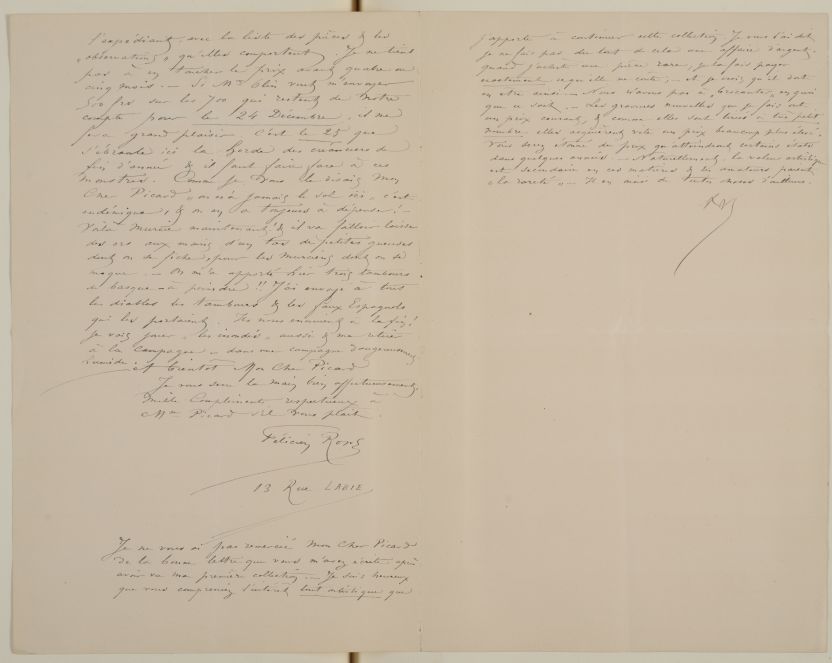 l'expédiant, avec la liste des pièces & les
« observations » qu'elles comportent. Je ne tiens
pas à en toucher le prix avant quatre ou
cinq mois. — Si Mr Olin veut m'envoyer
500 frs sur les 700 qui restent de notre
compte pour le 24 Décembre, il me
fera grand plaisir. C'est le 25 que
s'ébranle ici la horde des créanciers de
fin d'année & il faut faire face à ces
monstres. Comme je vous le disais Mon
Cher Picard « on n'a jamais le sol ici » c'est
endémique, & on en a toujours à dépenser! —
Voilà Murcie maintenant! & il va falloir laisser
des ors aux mains d'un tas de petites gueuses
dont on se fiche, pour les Murciens dont on se
moque. — On m'a apporté hier trois tambours
de basque à peindre!! J'ai envoyé à tous
les diables les tambours & les faux Espagnols
qui les portaient. Ils nous ennuient à la fin!
Je vais jouer « les inondés » aussi & me retirer
à la campagne, — dans une campagne
humide. à bientôt Mon Cher Picard
Je vous serre la main bien affectueusement,
Mille Compliments respectueux à
Mme Picard s'il vous plaît.
Félicien Rops
13 Rue LABIE
Je ne vous ai pas remercié Mon Cher Picard
de la bonne lettre que vous m'avez écrite après
avoir vu ma première collection. — Je suis heureux
que vous compreniez l'intérêt tout artistique que
j'apporte à continuer cette collection. Je vous l'ai dit,
je ne fais pas du tout de cela une affaire d'argent.
quand j'achète une pièce rare, je la fais payer
exactement ce qu'elle me coûte, — & je crois qu'il doit
en être ainsi. — Nous n'avons pas à « brocanter » en quoi
que ce soit. — Les gravures nouvelles que je fais ont
un prix courant, & comme elles sont tirées à très petit
nombre, elles acquièrent vite un prix beaucoup plus élevé.
Vous serez étonné du prix qu'atteindront certains états
dans quelques années. — Naturellement, la valeur artistique
est secondaire en ces matières & les amateurs
« la rareté » — Il en est de toutes choses d'ailleurs.